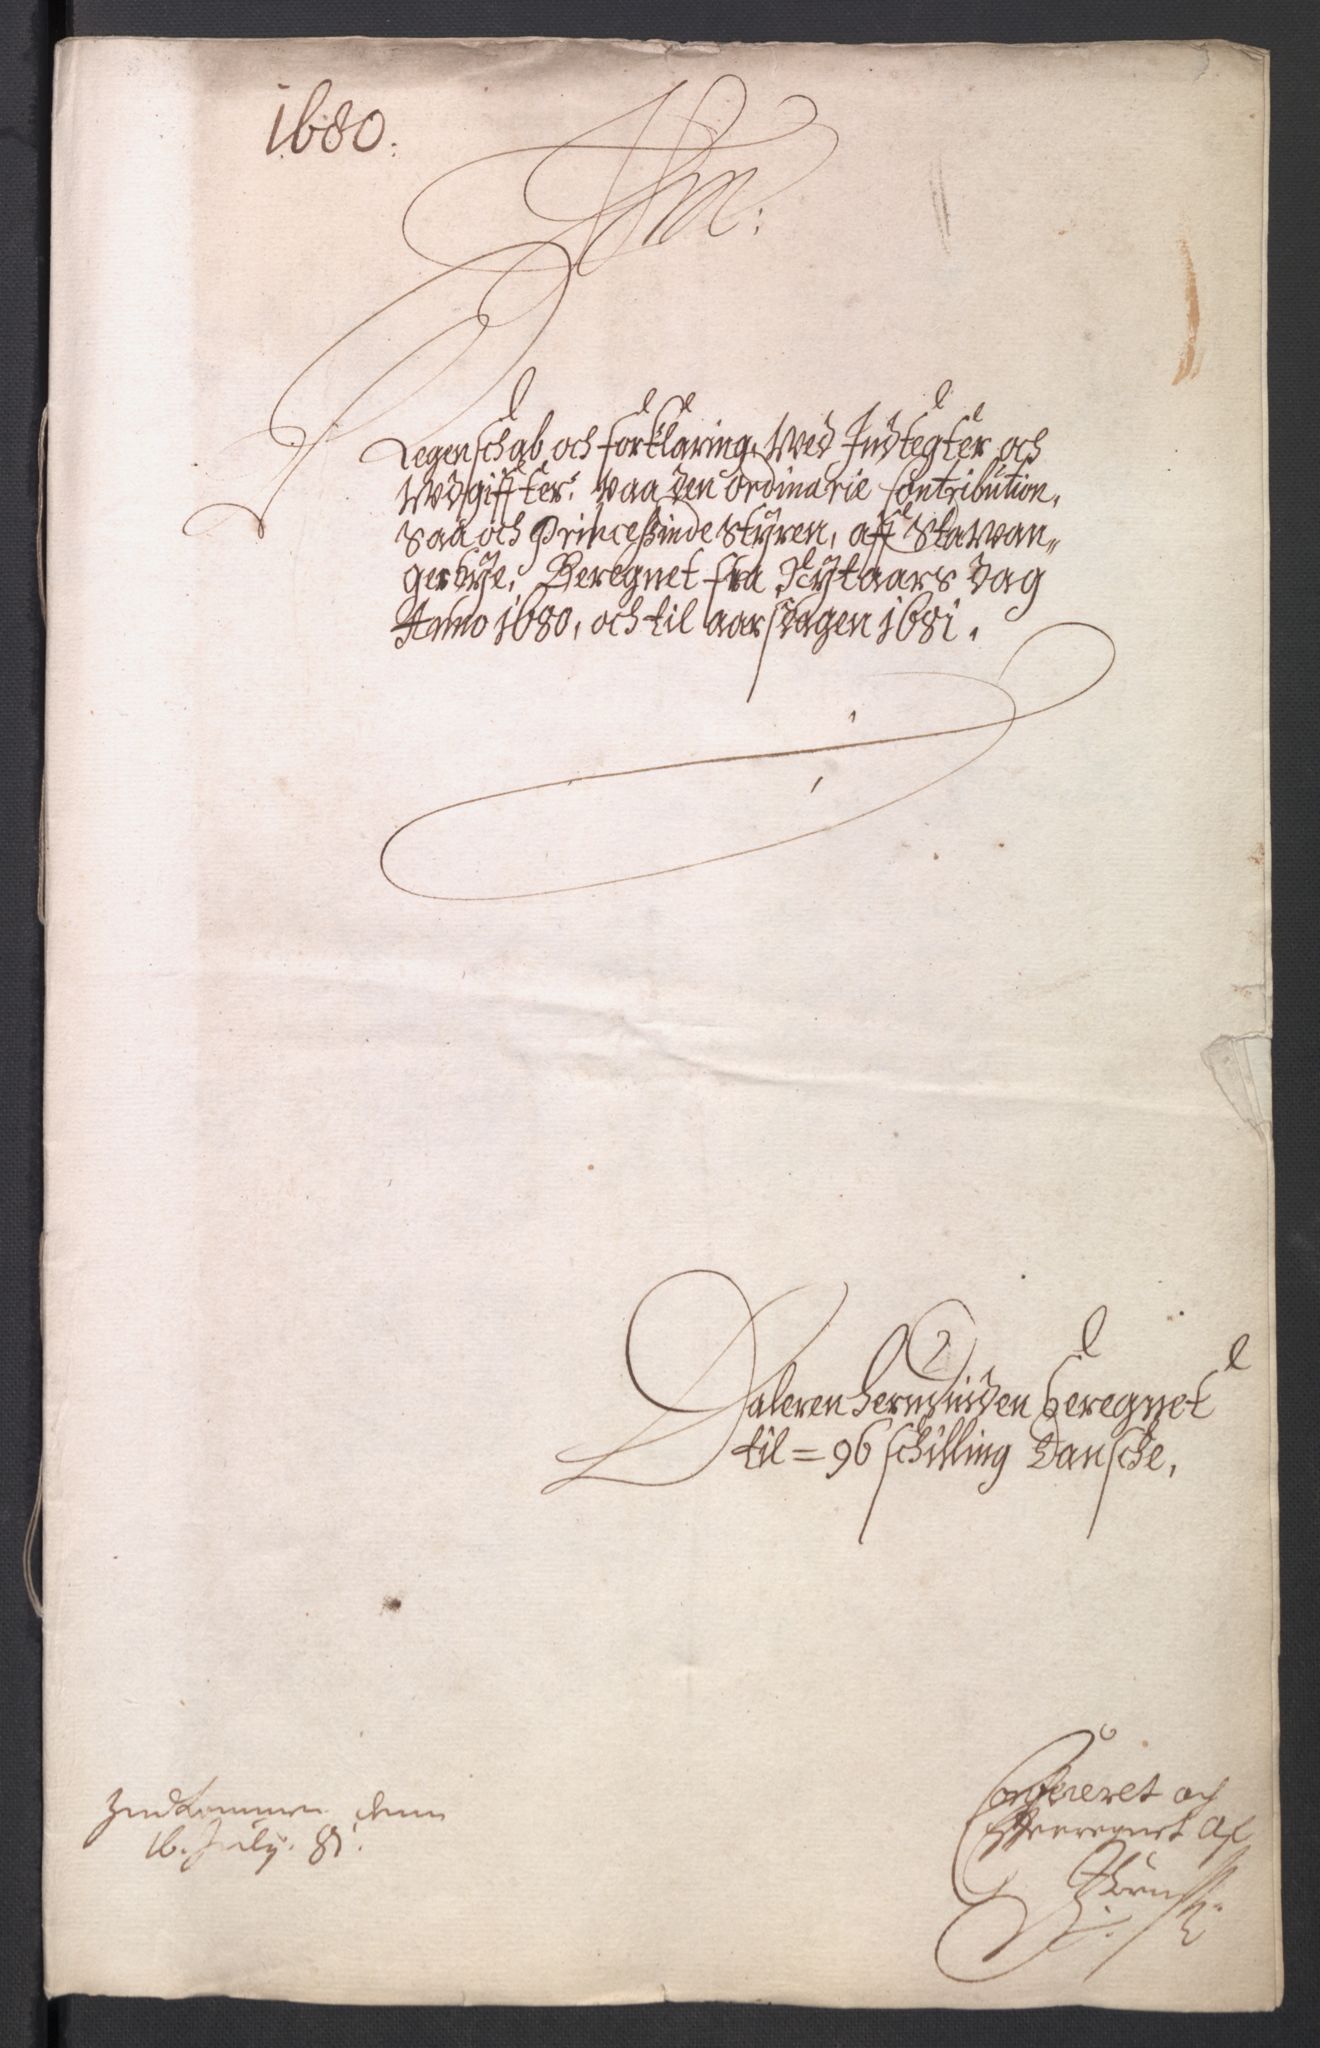 1680.
Regenschab och forklaring, Wed Indtegter och
Wdgiffter: paa den ordinarie Contribution,
saa och Princessinde styren, aff Stawan„
gerbye, Beregnet fra Nytaars dag
Anno 1680, och til aarsdagen 1681.
Daleren herudinden beregnet
til = 96 schilling Dansche,
Indkommen denn
16. July. 81.
och
Efterregnet af